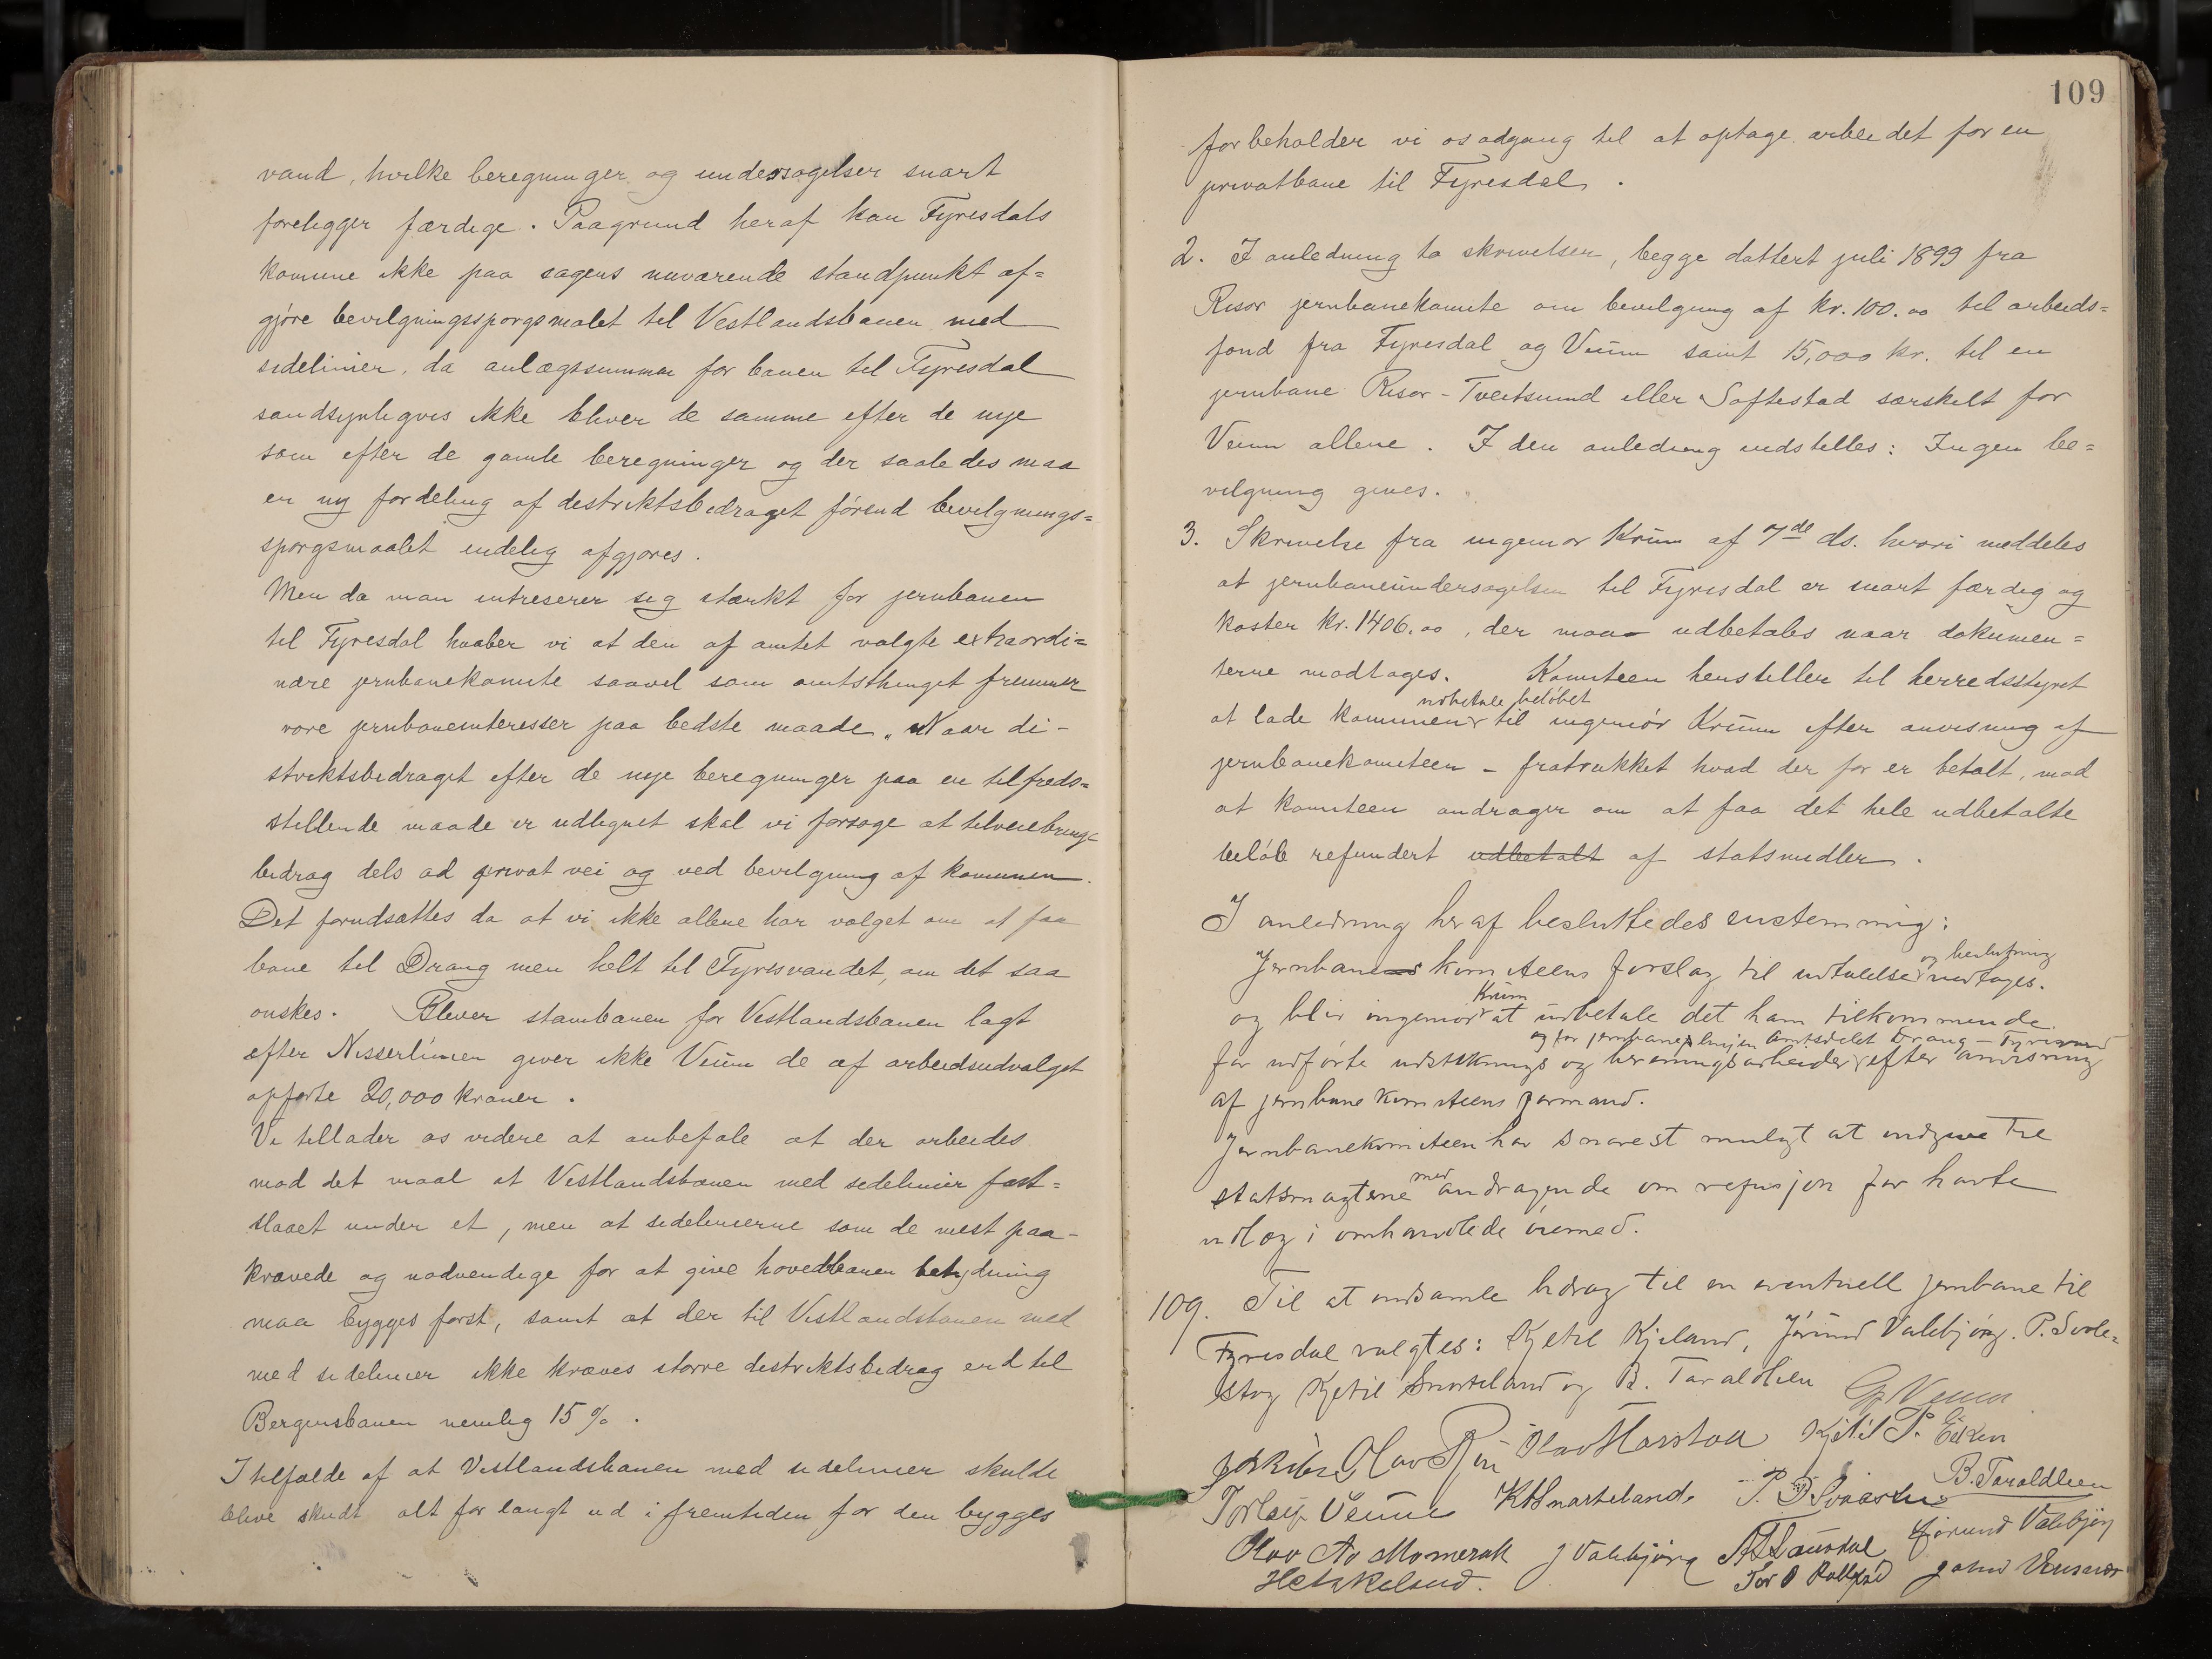 vand, hvilke beregninger og undersøgelser snart
foreligger færdige. Paagrund heraf kan Fyresdals
komune ikke paa sagens nuværende standpunkt af=
gjøre bevilgningsspørgsmalet til Vestlandsbanen med
sidelinier, da anlægssummen for banen til Fyresdal
sandsynligvis ikke bliver de samme efter de nye
som efter de gamle beregninger og der saaledes maa
en ny fordeling af distriktsbidraget førend bevilgnings=
spørgsmaalet endelig afgjøres.
Men da man intreserer sig stærkt for jernbanen
til Fyresdal haaber vi at den af amtet valgte extraordi=
nære jernbanekomite saavel som amtsthinget fremmer
vore jernbaneinteresser paa bedste maade. Naar di-
striktsbidraget efter de nye beregninger paa en tilfreds=
stillende maade er udlignet skal vi forsøge at tilveiebringe
bidrag dels ad privat vei og ved bevilgning af komunen.
Det forudsættes da at vi ikke allene har valget om at faa
bane til Drang men helt til Fyresvandet, om det saa
ønskes. Bliver stambanen for Vestlandsbanen lagt
efter Nisserlinien giver ikke Veum de af arbeidsudvalget
opførte 20,000 kroner.
Vi tillader os videre at anbefale at der arbeides
mod det maal at Vestlandsbanen med sidelinier fast=
slaaet under et, men at sidelinierne som de mest paa-
krævede og nødvendige for at give hovedbanen betydning
maa bygges først, samt at der til Vestlandsbanen med
med sidelinier ikke kræves større distriktsbidrag end til
Bergensbanen nemlig 15 %.
I tilfælde af at Vestlandsbanen med sidelinier skulde
blive skudt alt for langt ud i fremtiden før den bygges
109
forbeholder vi os adgang til at optage arbeidet for en
privatbane til Fyresdal.
2. I anledning to skrivelser, begge dattert juli 1899 fra
Risør jernbanekomite om bevilgning af kr. 100.00 til arbeids=
fond fra Fyresdal og Veum samt 15,000 kr. til en
jernbane Risør - Tveitsund eller Saftestad særskilt for
Veum allene. I den anledning indstilles: Ingen be=
vilgning gives.
3. Skrivelse fra ingeniør Krüm af 7de ds. hvori meddeles
at jernbaneundersøgelsen til Fyresdal er snart færdig og
koster kr. 1406.00, der maa udbetales naar dokumen=
terne modtages. Komiteen henstiller til herredsstyret
udbetale beløbet
at lade komunen til ingeniør Krüm efter anvisning af
jernbanekomiteen - fratrukket hvad der før er betalt, mod
at komiteen andrager om at faa det hele udbetalte
beløb refundert udbetalt af statsmidler.
I anledning heraf besluttedes enstemmig:
og beslutning
Jernbanekomiteens forslag til udtalelse vedtages.
Krüm
og blir ingeniør at udbetale det ham tilkommende
og for jernbanelinjen Amtsdelet Drang - Fyresvand
for udførte udstiknings og beregningsarbeider efter anvisning
af jernbanekomiteens formand.
Jernbanekomiteen har snarest muligt at indgive til
med
statsmagterne andragende om refusjon for havte
udlæg i omhandlede øiemed.
109. Til at indsamle bidrag til en eventuell jernbane til
Fyresdal valgtes: Kjetil Kjeland, Jørund Valebjørg. P. Svole=
stog Kjetil Snarteland og B. Taraldlien
G Veum
Olav Kjetil P. Eiken
Torleif Veum KHSnarteland. B. Taraldlien
Olav Av Momrak J Valebjørg Jørund Valebjørg